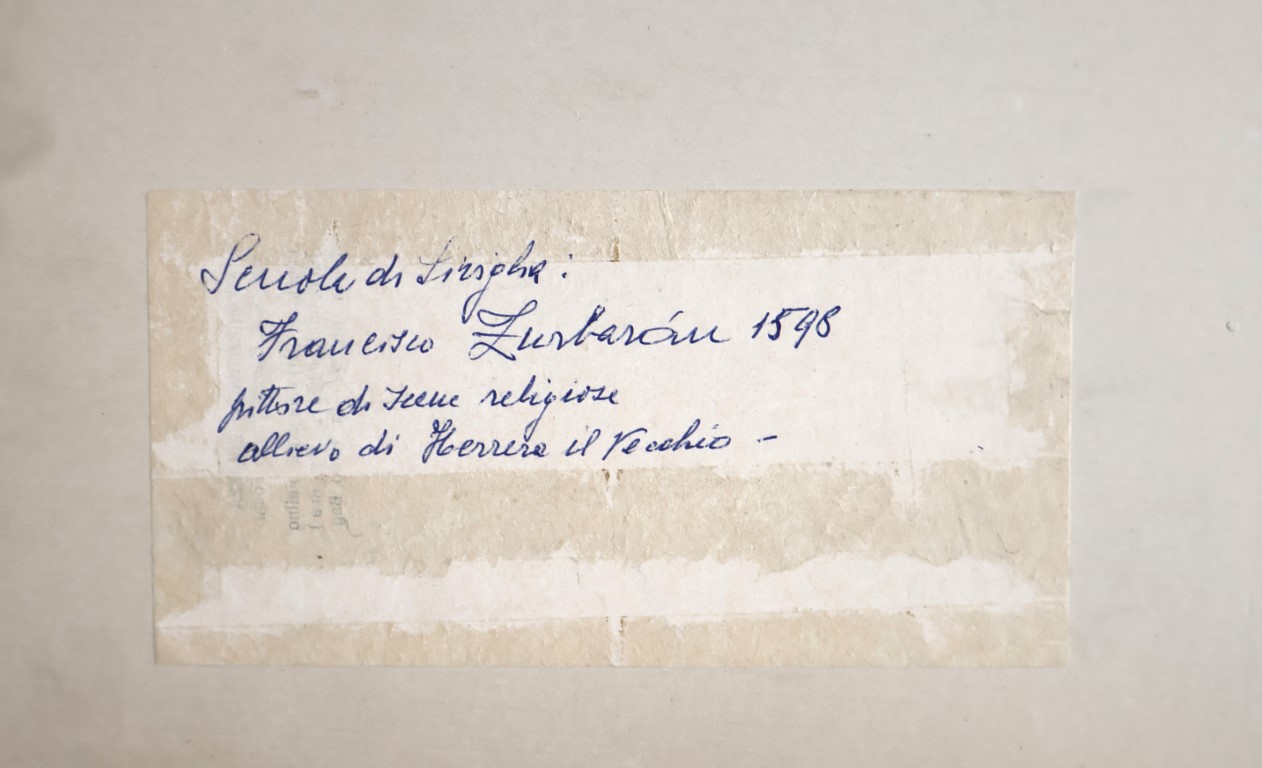 Scuola di Siviglia:
Francisco Zurbarán 1598
pittore di scene religiose
allievo di Herrera il Vecchio -